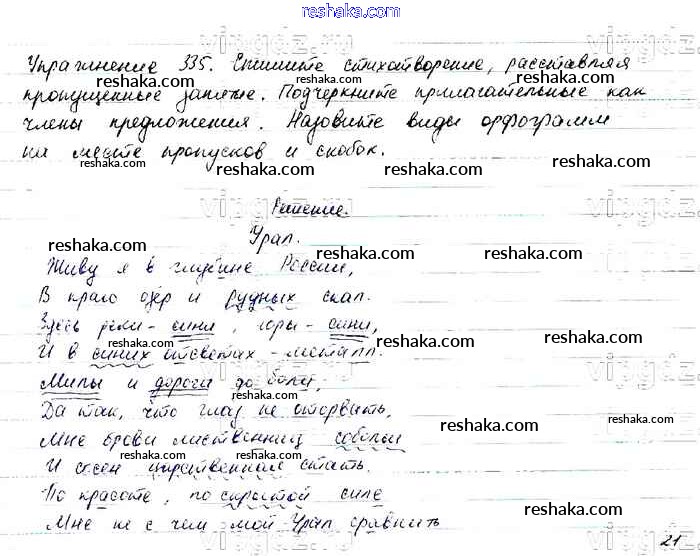 reshaka.com
Упражнение 335. Спишите стихотворение, расставляя
пропущенные запятые. Подчеркните прилагательные как
члены предложения. Назовите виды орфограмм
на месте пропусков и скобок.
Решение.
Урал.
Живу я в глубине России,
В краю озёр и рудных скал.
Здесь реки - сини, горы - сини,
И в синих отсветах - металл.
Милы и дороги до боли,
Да так, что глаз не оторвать,
Мне брови лиственниц собольи
И сосен царственная стать.
По красоте, по скрытой силе
Мне не с чем мой Урал сравнить
21